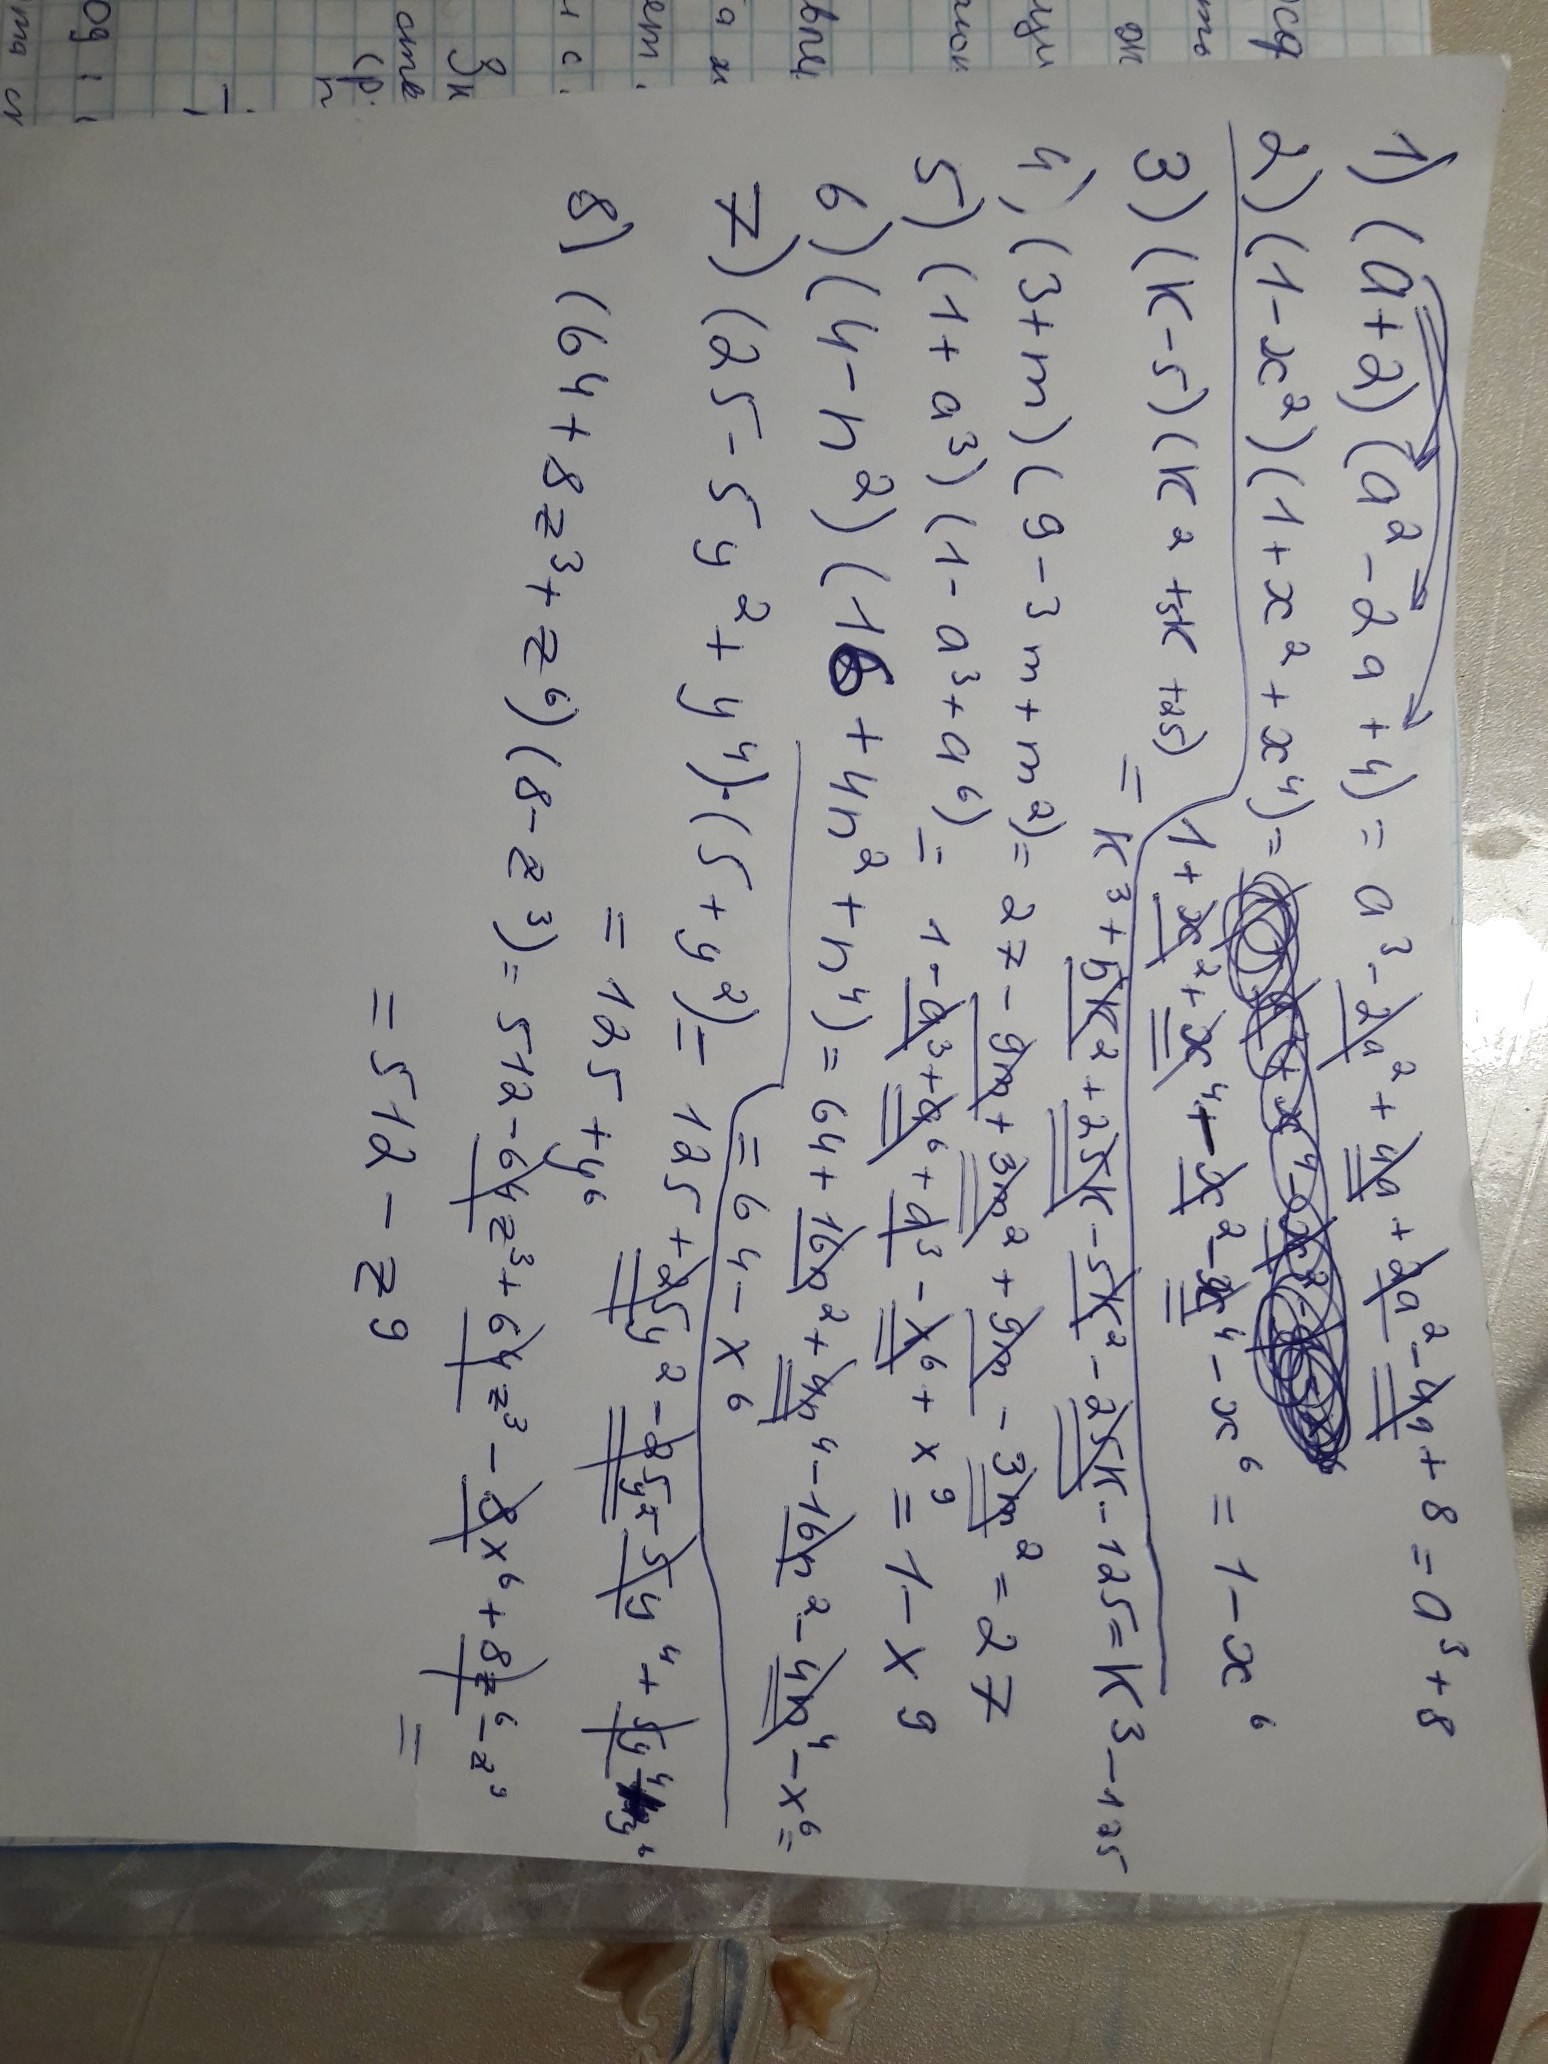 1) (a+2)(a²-2a+4) = a³-2a²+4a+2a²-4a+8=a³+8
2) (1-x²)(1+x²+x⁴)=
1+x²+x⁴-x²-x⁴-x⁶=1-x⁶
3) (K-5)(K²+5K+25)
= K³+5K²+25K-5K²-25K-125=K³-125
4) (3+m)(9-3m+m²)=27-9m+3m²+9m-3m²=27
5) (1+a³)(1-a³+a⁶)= 1-a³+a⁶+a³-x⁶+x⁹=1-x⁹
6) (4-n²)(16+4n²+n⁴)=64+16n²+4n⁴-16n²-4n⁴-x⁶=
=64-x⁶
7) (25-5y²+y⁴)·(5+y²)= 125+25y²-25y²-5y⁴+5y⁴+y⁶
=125+y⁶
8) (64+8z³+z⁶)(8-z³)=512-64z³+64z³-8x⁶+8z⁶-z⁹
=
=512-z⁹